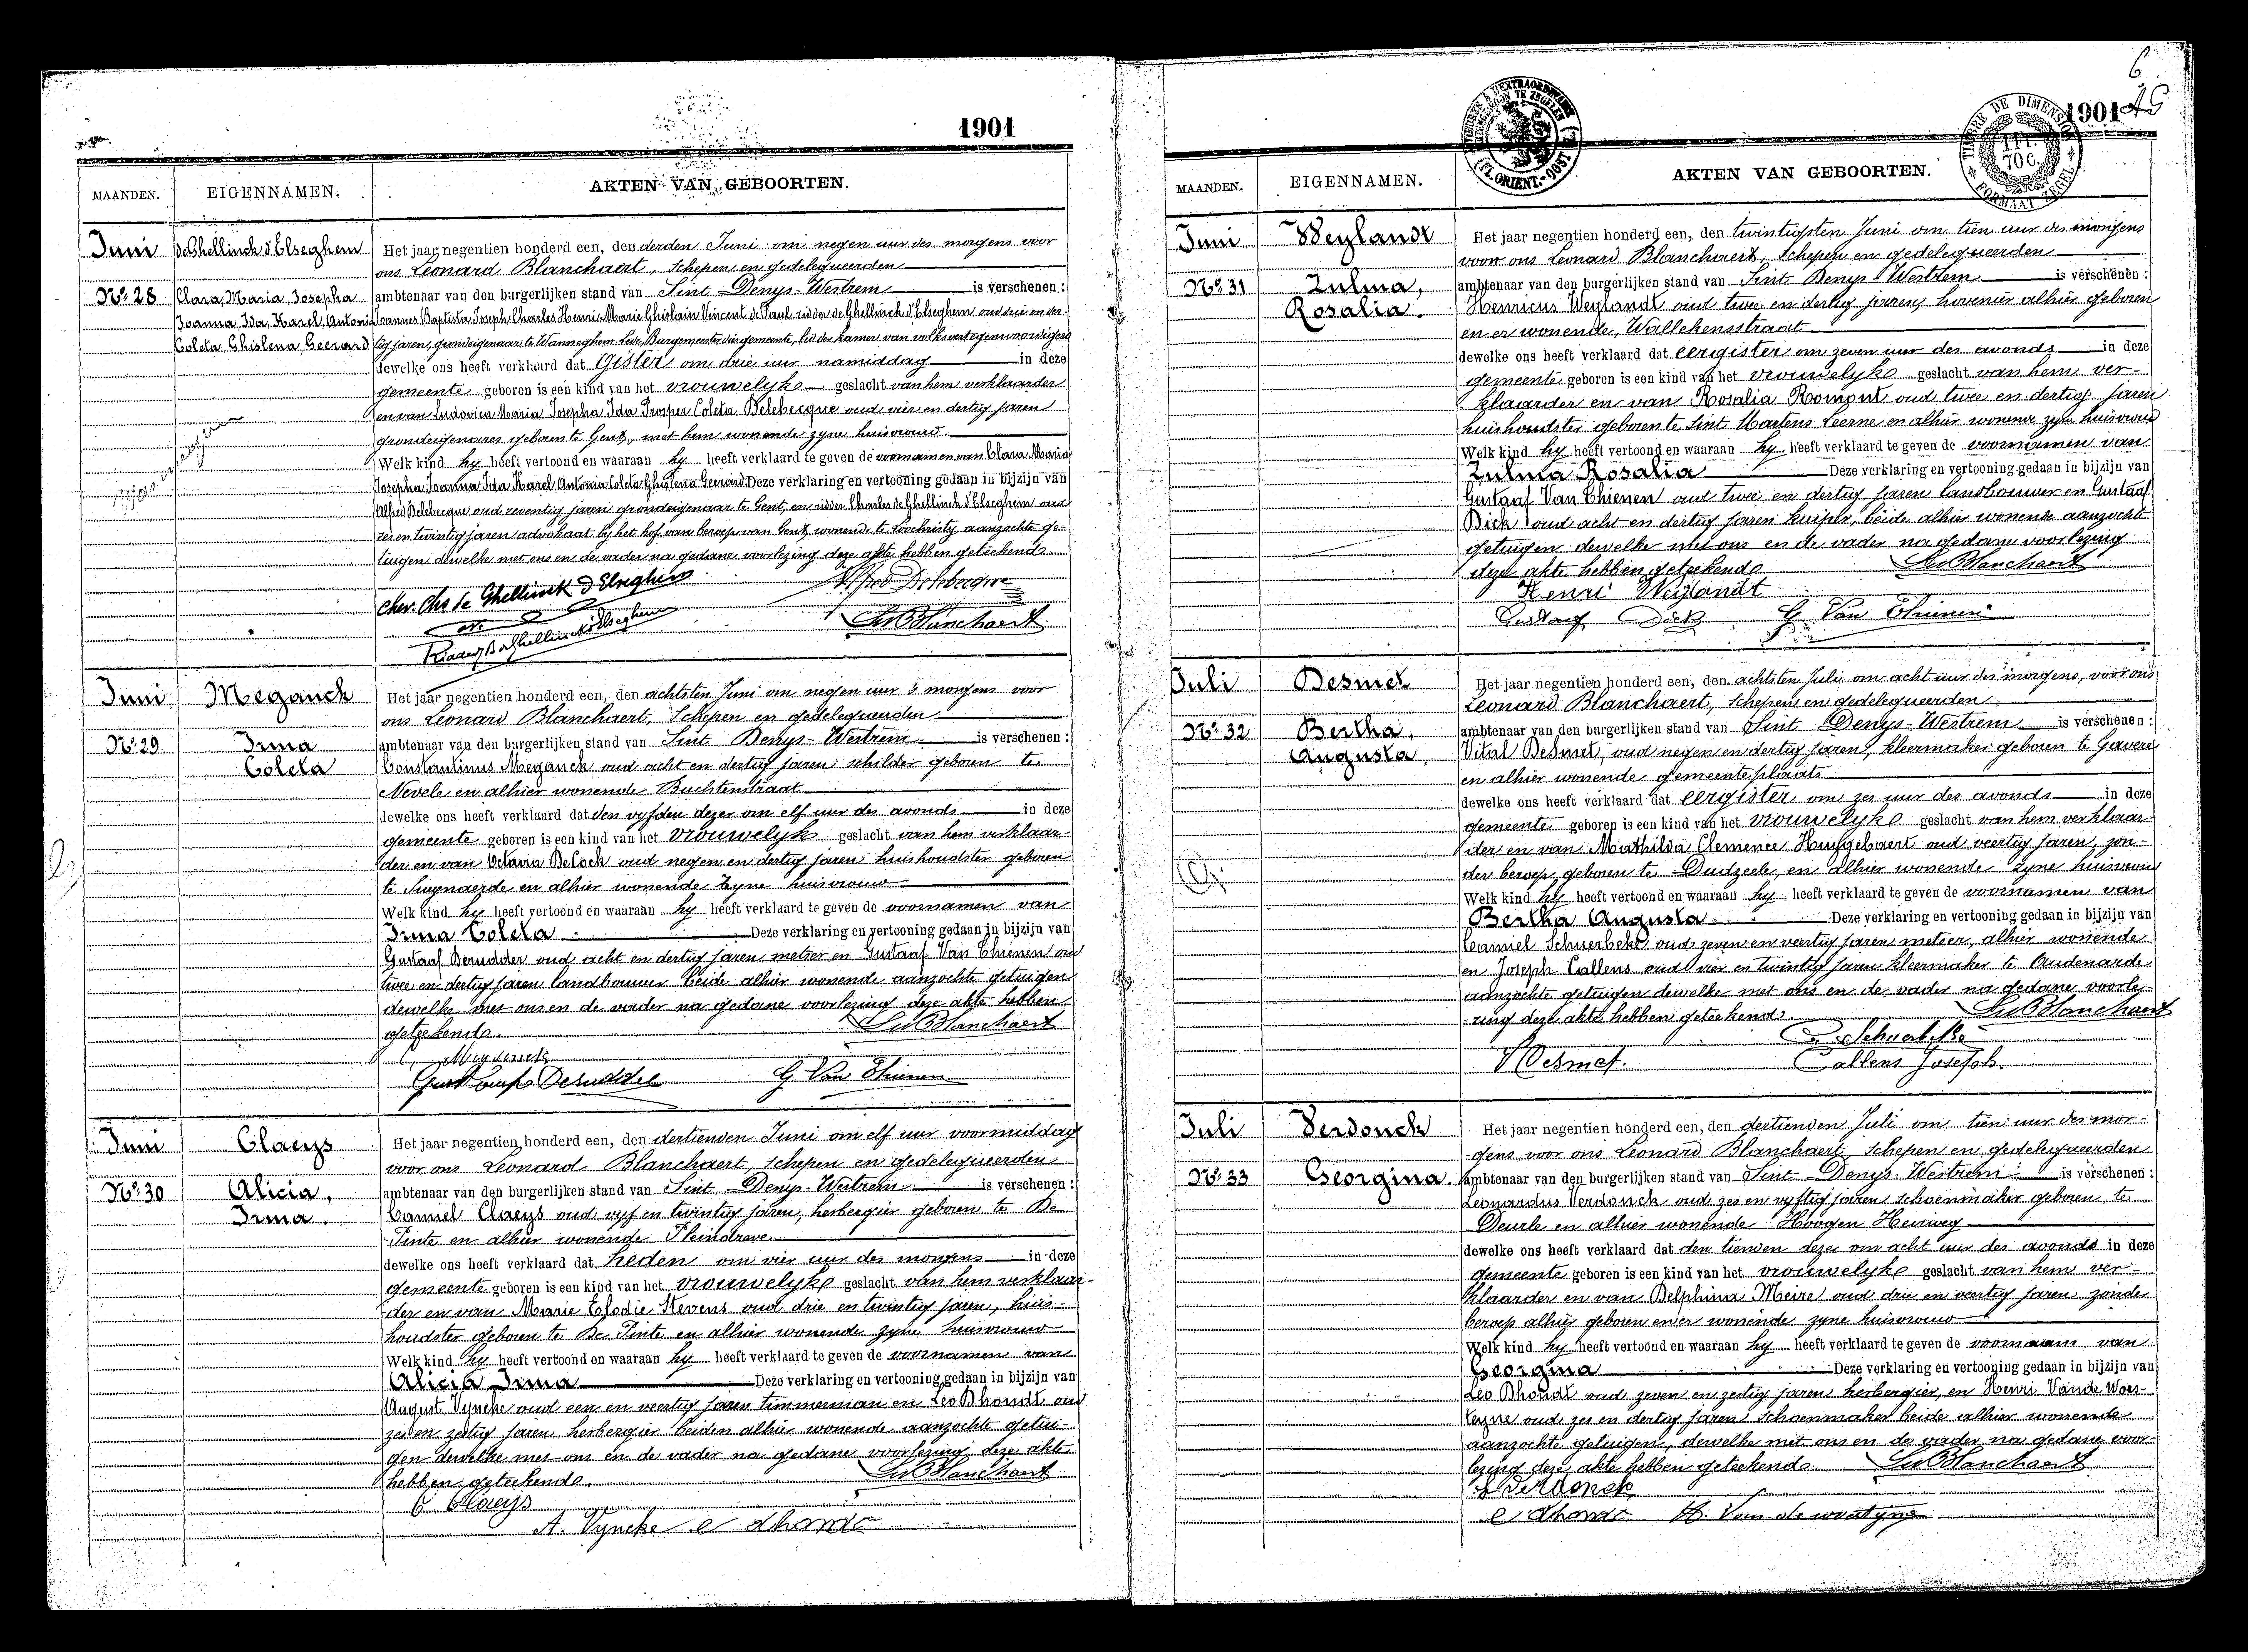 1901
MAANDEN. EIGENNAMEN. AKTEN VAN GEBOORTEN.
Juni
No. 28
de Ghellinck d'Elseghem
Clara, Maria, Josepha
Joanna, Ida, Karel, Antonia
Coleta Ghislena, Geerard
Het jaar negentien honderd een, den derden Juni om negen uur des morgens voor
ons Leonard Blanchaert, Schepen en gedelegueerden
ambtenaar van den burgerlijken stand van Sint Denys-Westrem is verschenen :
Joannes Baptista Joseph Charles Henri Marie Ghislain Vincent de Paul ridder de Ghellinck d'Elseghem oud drie en der-
tig jaren, grondeigenaar te Wanneghem-Lede, Burgemeester dier gemeente, lid der kamer van volksvertegenwoordigers
dewelke ons heeft verklaard dat Gister om drie uur namiddag in deze
gemeente geboren is een kind van het vrouwelyke geslacht van hem verklaarder
en van Ludovica Maria Josepha Ida Prosper Coleta Delebecque oud vier en dertig jaren
grondeigenares geboren te Gent, met hem wonende zyne huisvrouw.
Welk kind hy heeft vertoond en waaraan hy heeft verklaard te geven de voornamen van Clara Maria
Josepha Joanna Ida Karel, Antonia Coleta Ghislena Geerard Deze verklaring en vertooning gedaan in bijzijn van
Alfred Delebecque oud zeventig jaren grondeigenaar te Gent, en ridder Charles de Ghellinck d'Elseghem oud
zes en twintig jaren advokaat by het hof van beroep van Gent wonende te Loochristy aanzochte ge-
tuigen dewelke met ons en de vader na gedane voorlezing deze akte hebben geteekend.
Chev. Chs de Ghellinck d'Elseghem Alfred Delebecque
Ridder B de Ghellinck d'Elseghem Leo Blanchaert
Juni
No. 29
Meganck
Irma
Coleta
Het jaar negentien honderd een, den achtsten Juni om negen uur 's morgens voor
ons Leonard Blanchaert, Schepen en gedelegueerden
ambtenaar van den burgerlijken stand van Sint Denys-Westrem is verschenen :
Constantinus Meganck oud acht en dertig jaren schilder geboren te
Nevele en alhier wonende Buchtenstraat
dewelke ons heeft verklaard dat den vyfden dezer om elf uur des avonds in deze
gemeente geboren is een kind van het vrouwelyk geslacht van hem verklaar-
der en van Octavia DeCock oud negen en dertig jaren huishoudster geboren
te Swynaerde en alhier wonende zyne huisvrouw
Welk kind hy heeft vertoond en waaraan hy heeft verklaard te geven de voornamen van
Irma Coleta Deze verklaring en vertooning gedaan in bijzijn van
Gustaaf Derudder oud acht en dertig jaren metser en Gustaaf Van Thienen oud
twee en dertig jaren landbouwer beide alhier wonende aanzochte getuigen
dewelke met ons en de vader na gedane voorlezing deze akte hebben
geteekend. Leo Blanchaert
C. Meganck
Gustaaf Derudder G Van Thienen
Juni
No. 30
Claeys
Alicia,
Irma.
Het jaar negentien honderd een, den dertienden Juni om elf uur voormiddag
voor ons Leonard Blanchaert, schepen en gedelegueerden
ambtenaar van den burgerlijken stand van Sint Denys-Westrem is verschenen :
Camiel Claeys oud vyf en twintig jaren, herbergier geboren te De
Pinte en alhier wonende Pleindreve.
dewelke ons heeft verklaard dat heden om vier uur des morgens in deze
gemeente geboren is een kind van het vrouwelyke geslacht van hem verklaar-
der en van Marie Elodie Stevens oud drie en twintig jaren, huis-
houdster geboren te De Pinte en alhier wonende zyne huisvrouw
Welk kind hy heeft vertoond en waaraan hy heeft verklaard te geven de voornamen van
Alicia Irma Deze verklaring en vertooning gedaan in bijzijn van
August Vyncke oud een en veertig jaren timmerman en Leo Dhondt oud
zes en zestig jaren herbergier beiden alhier wonende aanzochte getui-
gen dewelke met ons en de vader na gedane voorlezing deze akte
hebben geteekend. Leo Blanchaert
C Claeys
A. Vyncke L Dhondt
6
1901
MAANDEN. EIGENNAMEN. AKTEN VAN GEBOORTEN.
(FL. ORIENT.-OOST
TIMBRE DE DIMENSION
1 FR.
70 C.
FORMAAT ZEGEL
Juni
No. 31
Weylandt
Zulma,
Rosalia.
Het jaar negentien honderd een, den twintigsten Juni om tien uur des morgens
voor ons Leonard Blanchaert, Schepen en gedelegueerden
ambtenaar van den burgerlijken stand van Sint Denys Westrem is verschenen :
Henricus Weylandt oud twee en dertig jaren, hovenier alhier geboren
en er wonende, Wallekensstraat
dewelke ons heeft verklaard dat eergister om zeven uur des avonds in deze
gemeente geboren is een kind van het vrouwelyke geslacht van hem ver-
klaarder en van Rosalia Romput oud twee en dertig jaren
huishoudster geboren te Sint Martens Leerne en alhier wonende zyne huisvrouw
Welk kind hy heeft vertoond en waaraan hy heeft verklaard te geven de voornamen van
Zulma Rosalia Deze verklaring en vertooning gedaan in bijzijn van
Gustaaf Van Thienen oud twee en dertig jaren landbouwer en Gustaaf
Dick oud acht en dertig jaren kuiper, beide alhier wonende aanzocht
getuigen dewelke met ons en de vader na gedane voorlezing
deze akte hebben geteekend Leo Blanchaert
Henri Weylandt
Gustaaf Dick G Van Thienen
Juli
No. 32
Desmet
Bertha,
Augusta.
Het jaar negentien honderd een, den achtsten Juli om acht uur des morgens, voor ons
Leonard Blanchaert, schepen en gedelegueerden
ambtenaar van den burgerlijken stand van Sint Denys-Westrem is verschenen :
Vital Desmet, oud negen en dertig jaren, kleermaker geboren te Gavere
en alhier wonende gemeenteplaats
dewelke ons heeft verklaard dat eergister om zes uur des avonds in deze
gemeente geboren is een kind van het vrouwelyke geslacht van hem verklaar-
der en van Mathilda Clemence Huysgebaert oud veertig jaren, zon-
der beroep geboren te Dudzeele, en alhier wonende zyne huisvrouw
Welk kind hy heeft vertoond en waaraan hy heeft verklaard te geven de voornamen van
Bertha Augusta Deze verklaring en vertooning gedaan in bijzijn van
Camiel Schuerbeke oud zeven en veertig jaren metser, alhier wonende
en Joseph Callens oud vier en twintig jaren kleermaker te Audenarde
aanzochte getuigen dewelke met ons en de vader na gedane voorle-
zing deze akte hebben geteekend. Leo Blanchaert
C. Schuerbeke
V Desmet. Callens Joseph.
Juli
No. 33
Verdonck
Georgina.
Het jaar negentien honderd een, den dertienden Juli om tien uur des mor-
gens voor ons Leonard Blanchaert, Schepen en gedelegueerden
ambtenaar van den burgerlijken stand van Sint Denys-Westrem is verschenen :
Leonardus Verdonck oud zes en vyftig jaren schoenmaker geboren te
Deurle en alhier wonende Hoogen Heirweg
dewelke ons heeft verklaard dat den tienden dezer om acht uur des avonds in deze
gemeente geboren is een kind van het vrouwelyke geslacht van hem ver-
klaarder en van Delphina Meire oud drie en veertig jaren zonder
beroep alhier geboren en er wonende zyne huisvrouw
Welk kind hy heeft vertoond en waaraan hy heeft verklaard te geven de voornaam van
Georgina Deze verklaring en vertooning gedaan in bijzijn van
Leo Dhondt oud zeven en zestig jaren herbergier, en Henri Vande Woes-
teyne oud zes en dertig jaren schoenmaker beide alhier wonende
aanzochte getuigen, dewelke met ons en de vader na gedane voor-
lezing deze akte hebben geteekend. Leo Blanchaert
L Verdonck
L Dhondt H. Van de woestyne